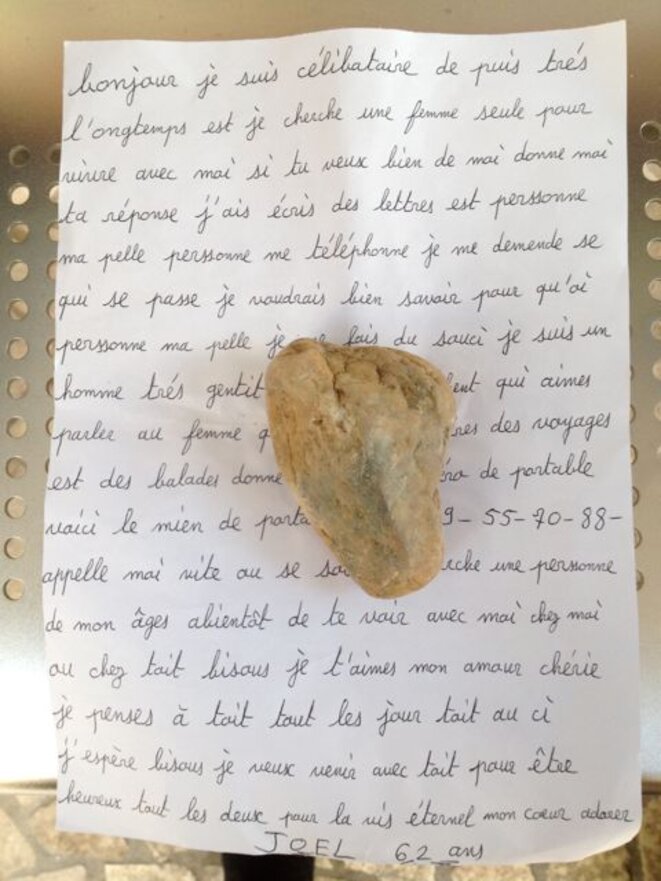 bonjour je suis célibataire de puis trés
l'ongtemps est je cherche une femme seule pour
vivre avec moi si tu veux bien de moi donne moi
ta réponse j'ais écris des lettres est perssonne
ma pelle perssonne me téléphonne je me demende se
qui se passe je voudrais bien savoir pour qu'oi
perssonne ma pelle je me fais du souci je suis un
homme trés gentit qui aimes
parler au femme des voyages
est des balades donne de portable
voici le mien de 9-55-70-88-
appelle moi vite ou se une personne
de mon âges abientôt de te voir avec moi chez moi
ou chez toit bisous je t'aimes mon amour chérie
je penses à toit tout les jour toit au ci
j'espère bisous je veux venir avec toit pour être
heureux tout les deux pour la vis éternel mon coeur adorer
JOEL 62 ans